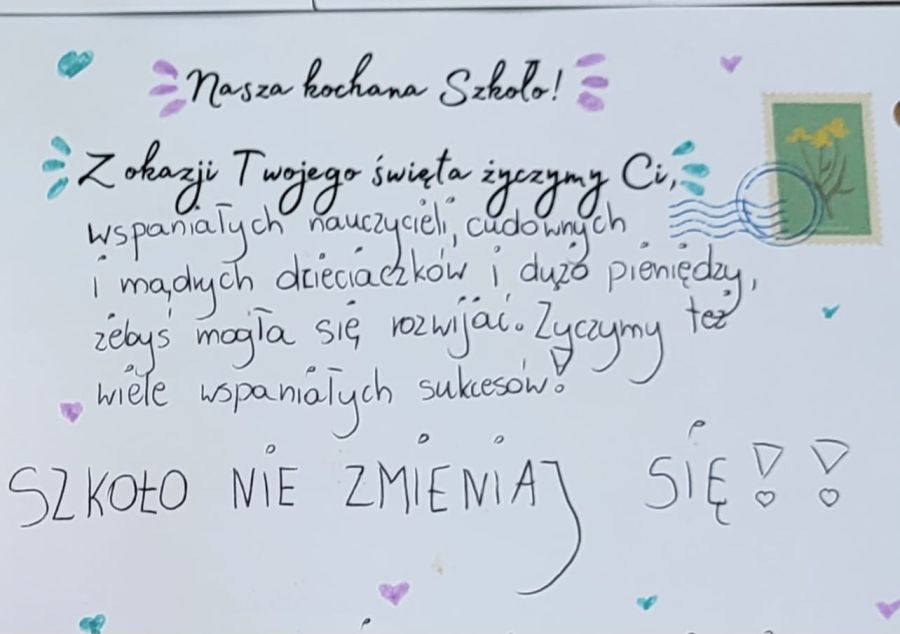 Nasza kochana Szkoło!
Z okazji Twojego święta życzymy Ci,
wspaniałych nauczycieli, cudownych
i mądrych dzieciaczków i dużo pieniędzy,
żebyś mogła się rozwijać. Życzymy też
wiele wspaniałych sukcesów!
SZKOŁO NIE ZMIENIAJ SIĘ!!